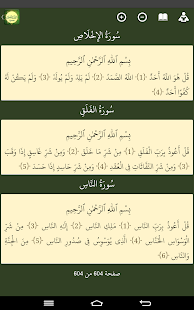 سُورَةُ الإِخْلَاصِ
بِسْمِ اللَّهِ الرَّحْمَٰنِ الرَّحِيمِ
قُلْ هُوَ اللَّهُ أَحَدٌ ﴿1﴾ اللَّهُ الصَّمَدُ ﴿2﴾ لَمْ يَلِدْ وَلَمْ يُولَدْ ﴿3﴾ وَلَمْ يَكُنْ لَهُ
كُفُوًا أَحَدٌ ﴿4﴾
سُورَةُ الْفَلَقِ
بِسْمِ اللَّهِ الرَّحْمَٰنِ الرَّحِيمِ
قُلْ أَعُوذُ بِرَبِّ الْفَلَقِ ﴿1﴾ مِنْ شَرِّ مَا خَلَقَ ﴿2﴾ وَمِنْ شَرِّ غَاسِقٍ إِذَا وَقَبَ
﴿3﴾ وَمِنْ شَرِّ النَّفَّاثَاتِ فِي الْعُقَدِ ﴿4﴾ وَمِنْ شَرِّ حَاسِدٍ إِذَا حَسَدَ ﴿5﴾
سُورَةُ النَّاسِ
بِسْمِ اللَّهِ الرَّحْمَٰنِ الرَّحِيمِ
قُلْ أَعُوذُ بِرَبِّ النَّاسِ ﴿1﴾ مَلِكِ النَّاسِ ﴿2﴾ إِلَٰهِ النَّاسِ ﴿3﴾ مِنْ شَرِّ
الْوَسْوَاسِ الْخَنَّاسِ ﴿4﴾ الَّذِي يُوَسْوِسُ فِي صُدُورِ النَّاسِ ﴿5﴾ مِنَ الْجِنَّةِ
وَالنَّاسِ ﴿6﴾
صفحة 604 من 604